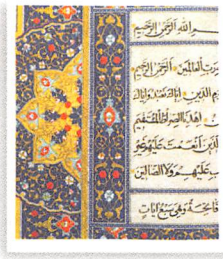 ـم الله الرحمن الرحيم
ـه رب العالمين الرحمن الرحيم
ـوم الدين إياك نعبد وإياك
اهدنا الصراط المستقيم
الذين أنعمت عليهم غير
ـب عليهم ولا الضالين
فاتحة وهى سبع آيات